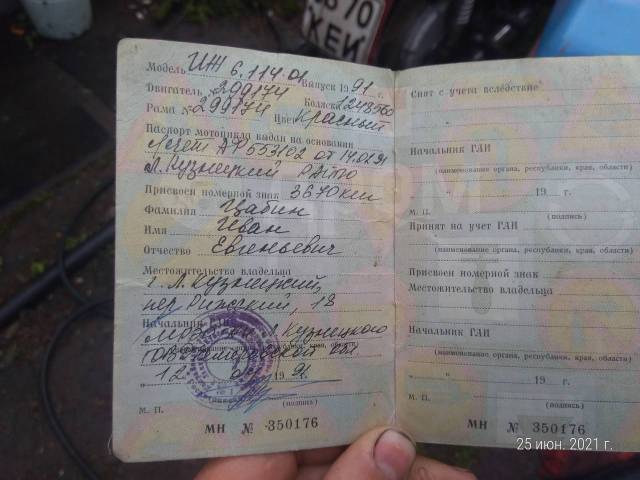 70
КЕИ
Модель ИЖ 6.114-01 Выпуск 1991 г.
Двигатель № 299174
Коляска 1248560
Рама № 299174 Цвет Красный
Паспорт мотоцикла выдан на основании
553102 от 14.02.91
Л.Кузнецкий
Присвоен номерной знак 3670 кеи
Фамилия Цабин
Имя Иван
Отчество Евгеньевич
Местожительство владельца
г. Л. Кузнецкий,
пер. Рижский, 18
Начальник
Л. Кузнецкого
обл
край, области)
" 12 1991
(подпись)
М. П.
МН № 350176
Снят с учета вследствие
Начальник ГАИ
(наименование органа, республики, края, области)
" " 19 г.
М. П. (подпись)
Принят на учет ГАИ
(наименование органа, республики, края, области)
Присвоен номерной знак
Местожительство владельца
Начальник ГАИ
(наименование органа, республики, края, области)
" " 19 г.
М. П. (подпись)
МН № 350176
25 июн. 2021 г.